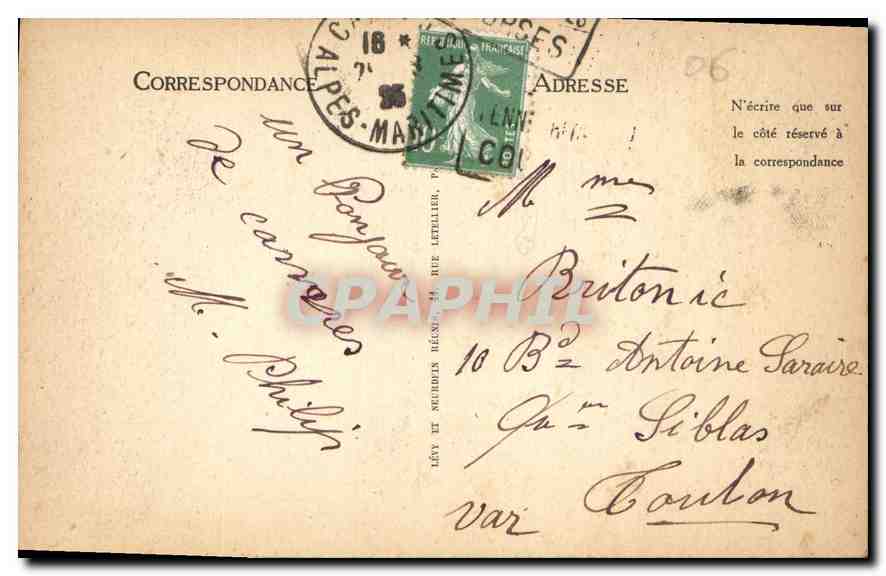 CORRESPONDANCE
ADRESSE
16 *
25
ALPES-MARITIMES
REPUBLIQUE FRANÇAISE
POSTES
N'écrire que sur
le côté réservé à
la correspondance
06
un Bonjour
de cannes
M. Philip
LÉVY ET NEURDEIN RÉUNIS, 44, RUE LETELLIER,
Mme
Britonic
10 Bd Antoine Saraire
Siblas
var Toulon
CPAPHIL